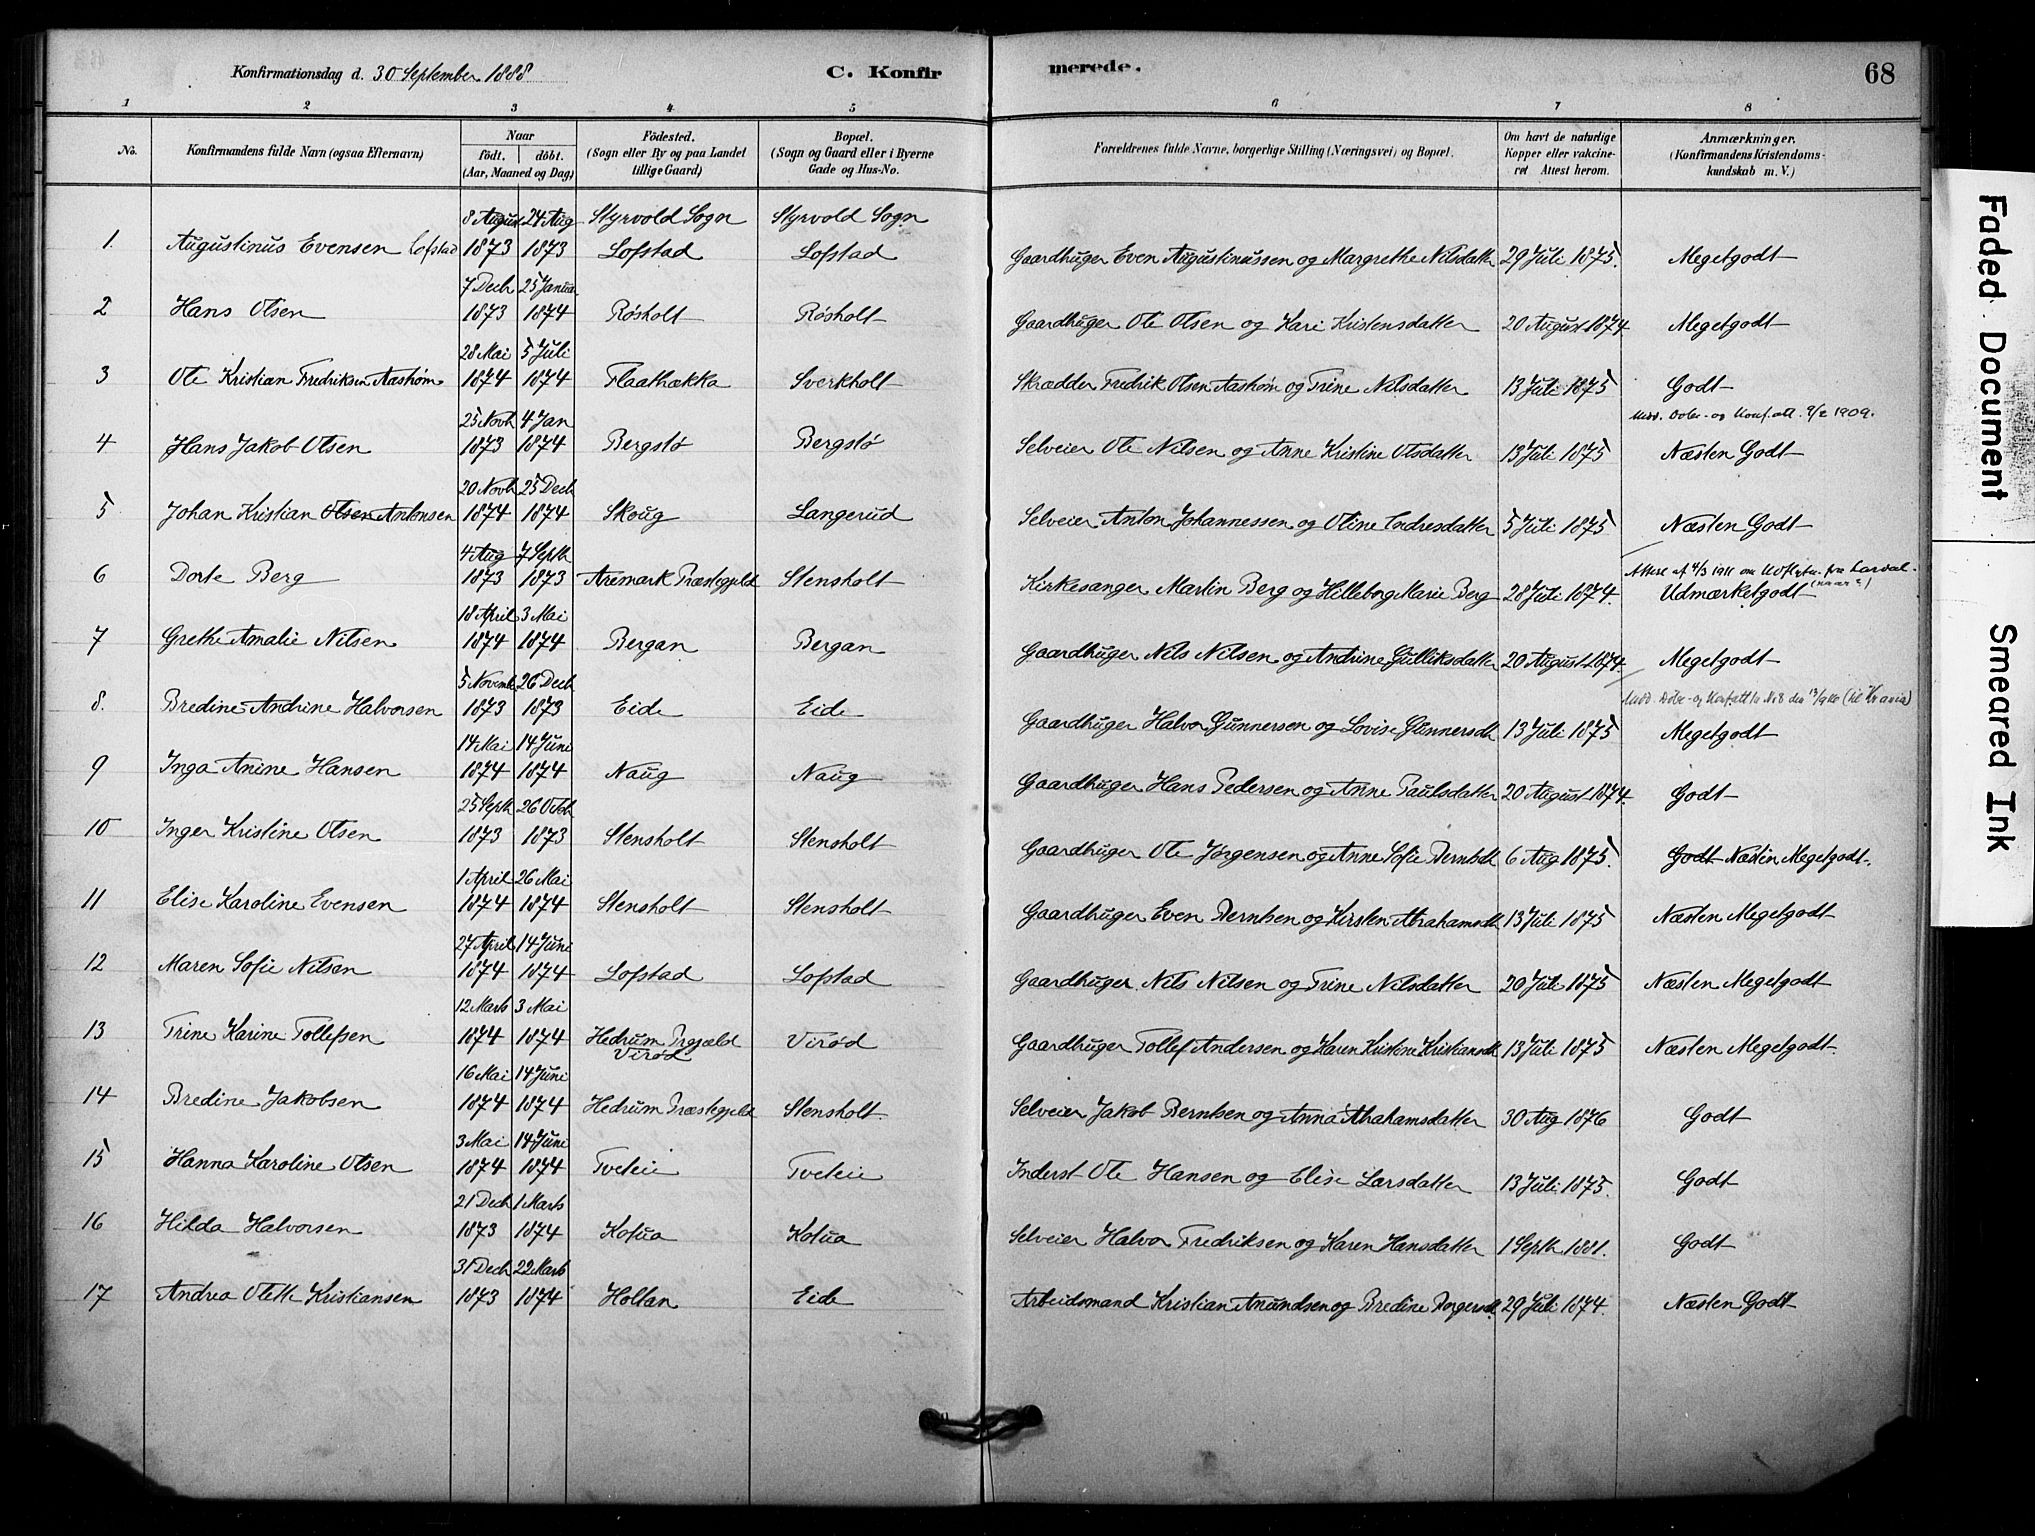 Konfirmationsdag d. 30 September 1888
C. Konfirmerede.
68
1 2 3 4 5 6 7 8
No.
Konfirmandens fulde Navn (ogsaa Efternavn)
Naar
födt. döbt.
(Aar, Maaned og Dag)
Födested.
(Sogn eller By og paa Landet
tillige Gaard)
Bopæl.
(Sogn og Gaard eller i Byerne
Gade og Hus-No.
Forældrenes fulde Navne, borgerlige Stilling (Næringsvei) og Bopæl.
Om havt de naturlige
Kopper eller vakcine-
ret Attest herom.
Anmærkninger.
(Konfirmandens Kristendoms-
kundskab m. V.)
8 August 24 Aug Styrvold Sogn Styrvold Sogn
1. Augustinus Evensen Lofstad 1873 1873 Lofstad Lofstad Gaardbruger Even Augustinussen og Margrethe Nilsdatter 29 Juli 1875. Megetgodt
7 Decb 25 Janua.
2 Hans Olsen 1873 1874 Røsholt Røsholt Gaardbruger Ole Olsen og Kari Kristensdatter 20 August 1874 Megetgodt
28 Mai 5 Juli
3 Ole Kristian Fredriksen Aashøm 1874 1874 Flaatbakka Sverkholt Skrædder Fredrik Olsen Aashøm og Trine Nilsdatter 13 Juli 1875 Godt
25 Novb 4 Jan 1909.
4 Hans Jakob Olsen 1873 1874 Bergstø Bergstø Selveier Ole Nilsen og Anne Kristine Olsdatter 13 Juli 1875 Næsten Godt
20 Novb 25 Decb
5 Johan Kristian Olsen Antonsen 1874 1874 Skoug Langerud Selveier Anton Johannessen og Oline Endresdatter 5 Juli 1875 Næsten Godt
4 Aug 7 Septb
Attest af 4/3 1911
6 Dorte Berg 1873 1873 Aremark Præstegjeld Stensholt Kirkesanger Martin Berg og Hilleborg Marie Berg 28 Juli 1874. Udmærketgodt
18 April 3 Mai
7 Grethe Amalie Nilsen 1874 1874 Bergan Bergan Gaardbruger Nils Nilsen og Andrine Gulliksdatter 20 August 1874 Megetgodt
5 Novemb 26 Decb
8. Bredine Andrine Halvorsen 1873 1873 Eide Eide Gaardbruger Halvor Gunnersen og Lovise Gunnersdtr 13 Juli 1875 Megetgodt
14 Mai 14 Juni
9 Inga Anine Hansen 1874 1874 Naug Naug Gaardbruger Hans Pedersen og Anne Paulsdatter 20 August 1874. Godt
25 Septb 26 Octob
10 Inger Kristine Olsen 1873 1873 Stensholt Stensholt Gaardbruger Ole Jørgensen og Anne Sofie Berntsdt 6 Aug 1875. Godt Næsten Megetgodt.
1 April 26 Mai
11 Elise Karoline Evensen 1874 1874 Stensholt Stensholt Gaardbruger Even Berntsen og Kirsten Abrahamsdt 13 Juli 1875 Næsten Megetgodt
27 April 14 Juni
12 Maren Sofie Nilsen 1874 1874 Lofstad Lofstad Gaardbruger Nils Nilsen og Trine Nilsdatter 20 Juli 1875 Næsten Megetgodt
12 Marts 3 Mai
13 Trine Karine Tollefsen 1874 1874 Hedrum Prgjæld Virød Gaardbruger Tollef Andersen og Karen Kristine Kristiansdt 13 Juli 1875 Næsten Megetgodt.
Virød
16 Mai 14 Juni
14 Bredine Jakobsen 1874 1874 Hedrum Præstegjeld Stensholt Selveier Jakob Berntsen og Anna Abrahamsdatter 30 Aug 1876 Godt
3 Mai 14 Juni
15 Hanna Karoline Olsen 1874 1874 Tveteie Tveteie Inderst Ole Hansen og Elise Larsdatter 13 Juli 1875. Godt
21 Decb 1 Marts
16 Hilda Halvorsen 1873 1874 Kolua Kolua Selveier Halvor Fredriksen og Karen Hansdatter 1 Septb 1881. Godt
31 Decb 22 Marts
17 Andrea Olette Kristiansen 1873 1874 Holtan Eide Arbeidsmand Kristian Amundsen og Bredine 29 Juli 1874. Næsten Godt
Faded Document
Smeared Ink